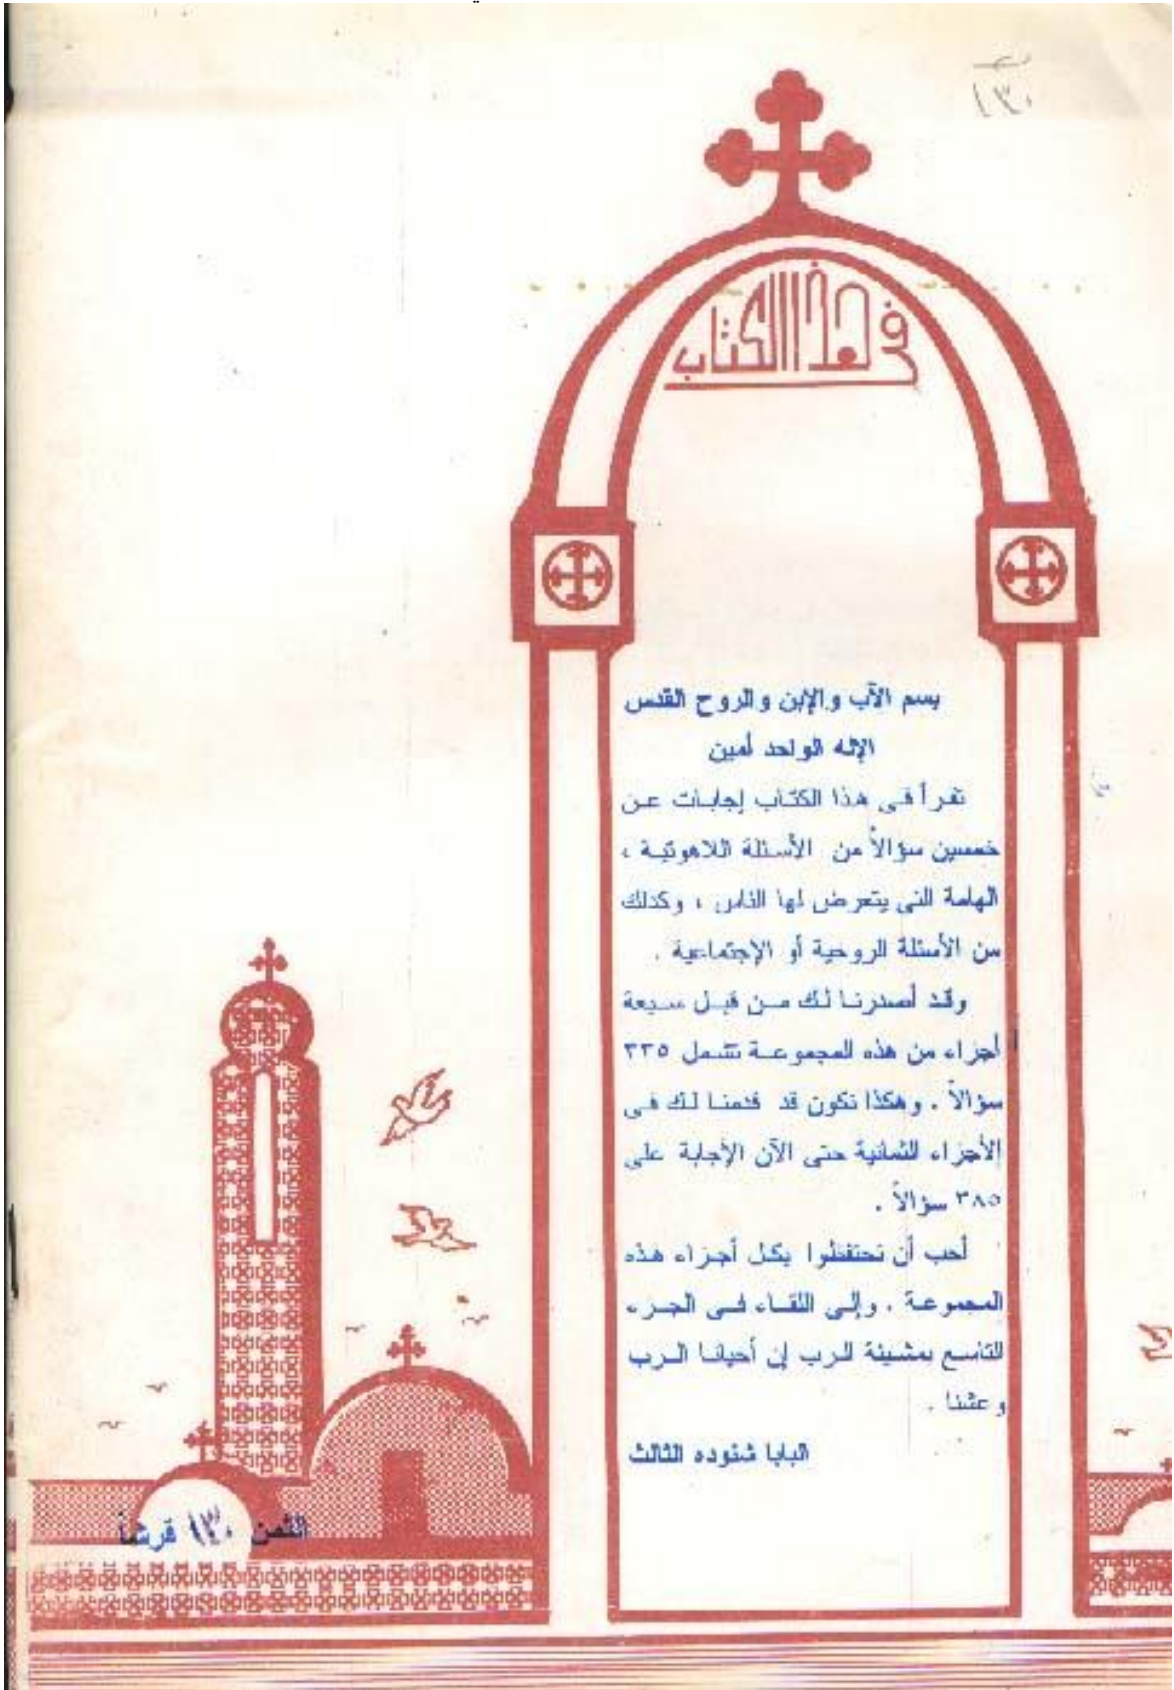 ١٣٠
فى هذا الكتاب
بسم الآب والإبن والروح القدس
الإله الواحد أمين
تقرأ فى هذا الكتاب إجابات عن
خمسين سؤالاً من الأسئلة اللاهوتية ،
الهامة التى يتعرض لها الناس ، وكذلك
من الأسئلة الروحية أو الإجتماعية .
وقد أصدرنا لك من قبل سبعة
أجزاء من هذه المجموعة تشمل ٣٣٥
سؤالاً . وهكذا نكون قد قدمنا لك فى
الأجزاء الثمانية حتى الآن الأجابة على
٣٨٥ سؤالاً .
أحب أن تحتفظوا بكل أجزاء هذه
المجموعة . وإلى اللقاء فى الجزء
التاسع بمشيئة الرب إن أحيانا الرب
وعشنا .
البابا شنوده الثالث
الثمن ١٣٠ قرشاً